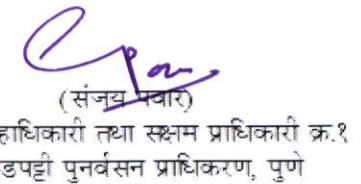 (संजय पवार)
हाधिकारी तथा सक्षम प्राधिकारी क्र.१
डपट्टी पुनर्वसन प्राधिकरण, पुणे